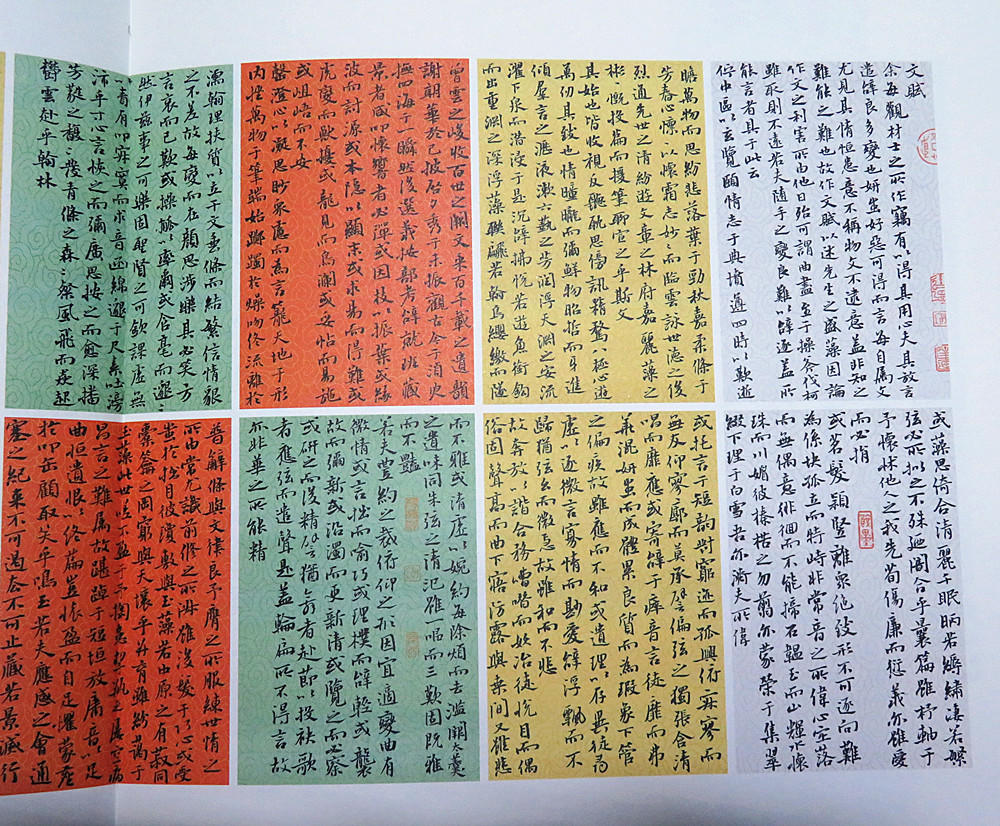 文賦
余每觀材士之所作竊有以得其用心夫其放言
遣辭良多變也妍蚩好惡可得而言每自属文
尤見其情恒患意不稱物文不逮意蓋非知之
難能之難也故作文賦以述先生之盛藻因論
作文之利害所由他日殆可謂曲盡至于操斧伐柯
雖取則不遠若夫随手之變良難以辞逮蓋所
能言者具于此云
佇中區以玄覽頤情志于典墳遵四時以歎逝
瞻萬物而思紛悲落葉于勁秋嘉柔條于
芳春心懍懍以懷霜志眇眇而臨雲詠世德之俊
烈通先世之清紛遊文章之林府嘉麗藻之
彬彬慨投篇而援筆聊宣之乎斯文
其始也皆收視反聽耽思傍訊精騖八極心遊
萬仞其致也情曈曨而彌鮮物昭晢而互進
傾群言之瀝液漱六藝之芳潤浮天淵之安流
濯下泉而潛浸于是沉辞怫悅若遊魚銜鈎
而出重淵之深浮藻聯翩若翰鳥纓繳而墜
曾雲之峻收百世之闕文采百千載之遺韻
謝朝華於已披啟夕秀于未振觀古今于須臾
撫四海于一瞬然後選義按部考辞就班藏
景者咸叩懷響者必彈或因枝以振葉或緣
波而討源或本隱以顯末或求易而得難或
虎變而獸擾或龍見而鳥瀾或妥帖而易施
或岨峿而不安
罄澄心以凝思眇眾慮而為言籠天地于形
内挫萬物于筆端始躑躅於燥吻終流離於
濡翰理扶質以立干文垂條而結繁信情貌
之不差故每變而在顏思涉樂其必笑方
言哀而已歎或操觚以率爾或含毫而邈
然伊茲事之可樂固聖賢之可欽課虛無
以責有叩寂寞而求音函綿邈于尺素吐滂
沛乎寸心言恢之而彌廣思按之而愈深播
芳蕤之馥馥發青條之森森粲風飛而猋起
鬱雲起乎翰林
或藻思綺合清麗千眠炳若縟繡淒若繁
弦必所擬之不殊乃闇合乎曩篇雖杼軸于
予懷怵他人之我先苟傷廉而愆義亦雖愛
而必捐
或苕發穎豎離眾絕致形不可逐響難
為係塊孤立而特峙非常音之所緯心牢落
而無偶意徘徊而不能揥石韞玉而山輝水懷
珠而川媚彼榛楛之勿翦亦蒙榮于集翠
綴下里于白雪吾亦濟夫所偉
或托言于短韻對窮迹而孤興俯寂寞而
無友仰寥廓而莫承譬偏弦之獨張含清
唱而靡應或寄辞于瘁音言徒靡而弗
華混妍蚩而成體累良質而為瑕象下管
之偏疾故雖應而不和或遺理以存異徒尋
虛以逐微言寡情而鮮愛辞浮飄而不
歸猶弦么而徽急故雖和而不悲
或奔放以諧合務嘈囋而妖冶徒悅目而偶
俗固聲高而曲下寤防露與桑間又雖悲
而不雅或清虛以婉約每除煩而去濫闕大羹
之遺味同朱弦之清氾雖一唱而三歎固既雅
而不豔
若夫豐約之裁俯仰之形因宜適變曲有
微情或言拙而喻巧或理樸而辞輕或襲
故而彌新或沿濁而更清或覽之而必察
或研之而後精譬猶舞者赴節以投袂歌
者應弦而遣聲是蓋輪扁所不得言故
亦非華說之所能精
普辭條與文律良予膺之所服練世情之
常尤識前修之所淑雖浚發于巧心或受
蚩於拙目彼瓊敷與玉藻若中原之有菽同
橐籥之罔窮與天壤乎并育雖紛藹于
此世嗟不盈于予掬患挈瓶之屢空病
昌言之難属故踸踔于短垣放庸音以足
曲恒遺恨以終篇豈懷盈而自足懼蒙塵
於叩缶顧取笑乎鳴玉若夫應感之會通
塞之紀來不可遏去不可止藏若景滅行